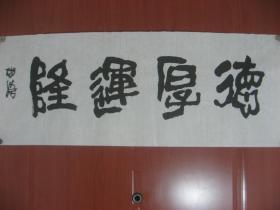 德厚運隆